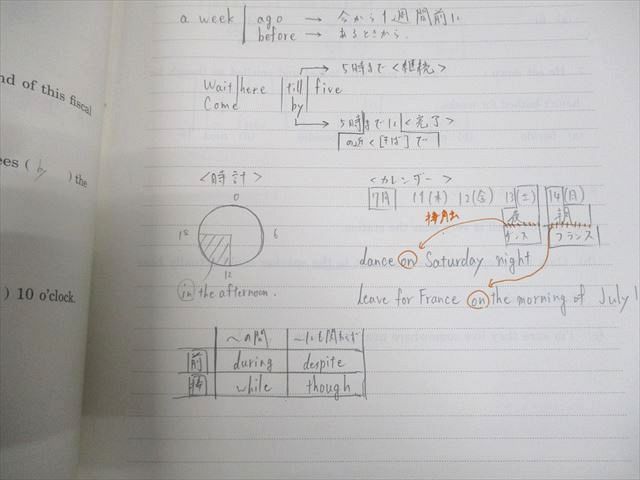 nd of this fiscal
ees ( by ) the
) 10 o'clock.
a week ago → 今から1週間前に
before → あるときから
→ 5時まで <継続>
Wait here till five
Come by
→ 5時までに <完了>
の近く [そば] で
<時計>
0
18 6
12
in the afternoon.
<カレンダー>
7月 11(木) 12(金) 13(土) 14(日)
夜 朝
ダンス フランス
dance on Saturday night
leave for France on the morning of July 1
〜の間 〜にも関わらず
前 during despite
接 while though